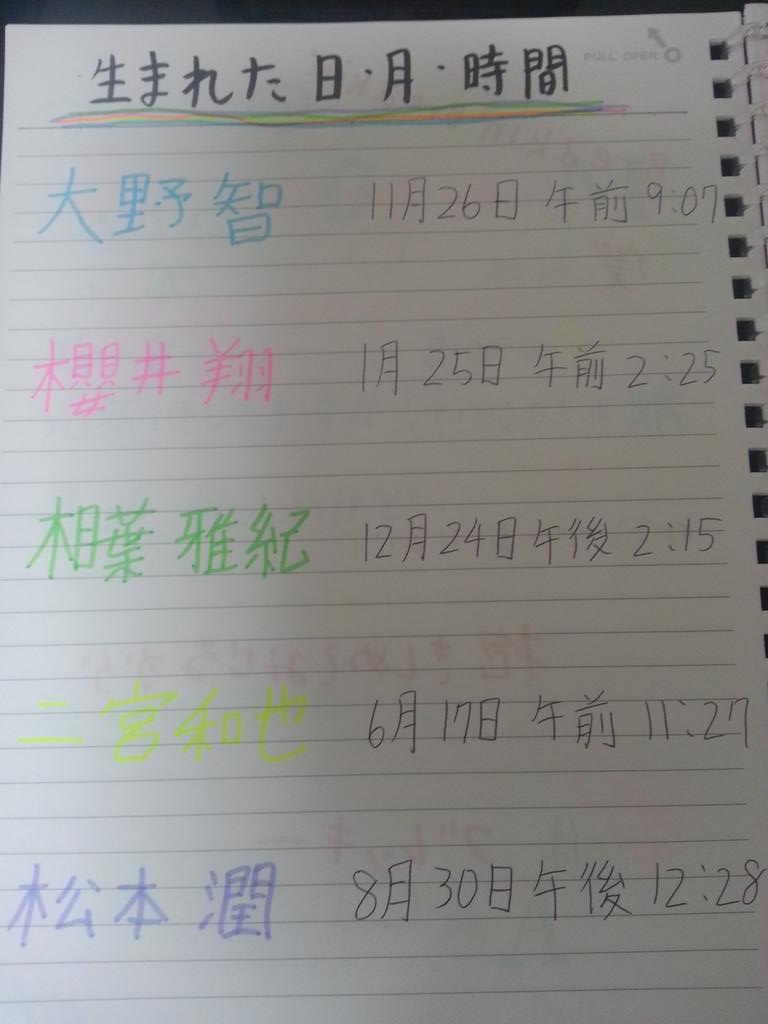 PULL OPEN
生まれた日・月・時間
大野智 11月26日 午前 9:07
櫻井翔 1月25日 午前 2:25
相葉雅紀 12月24日 午後 2:15
二宮和也 6月17日 午前 11:27
松本潤 8月30日 午後 12:28